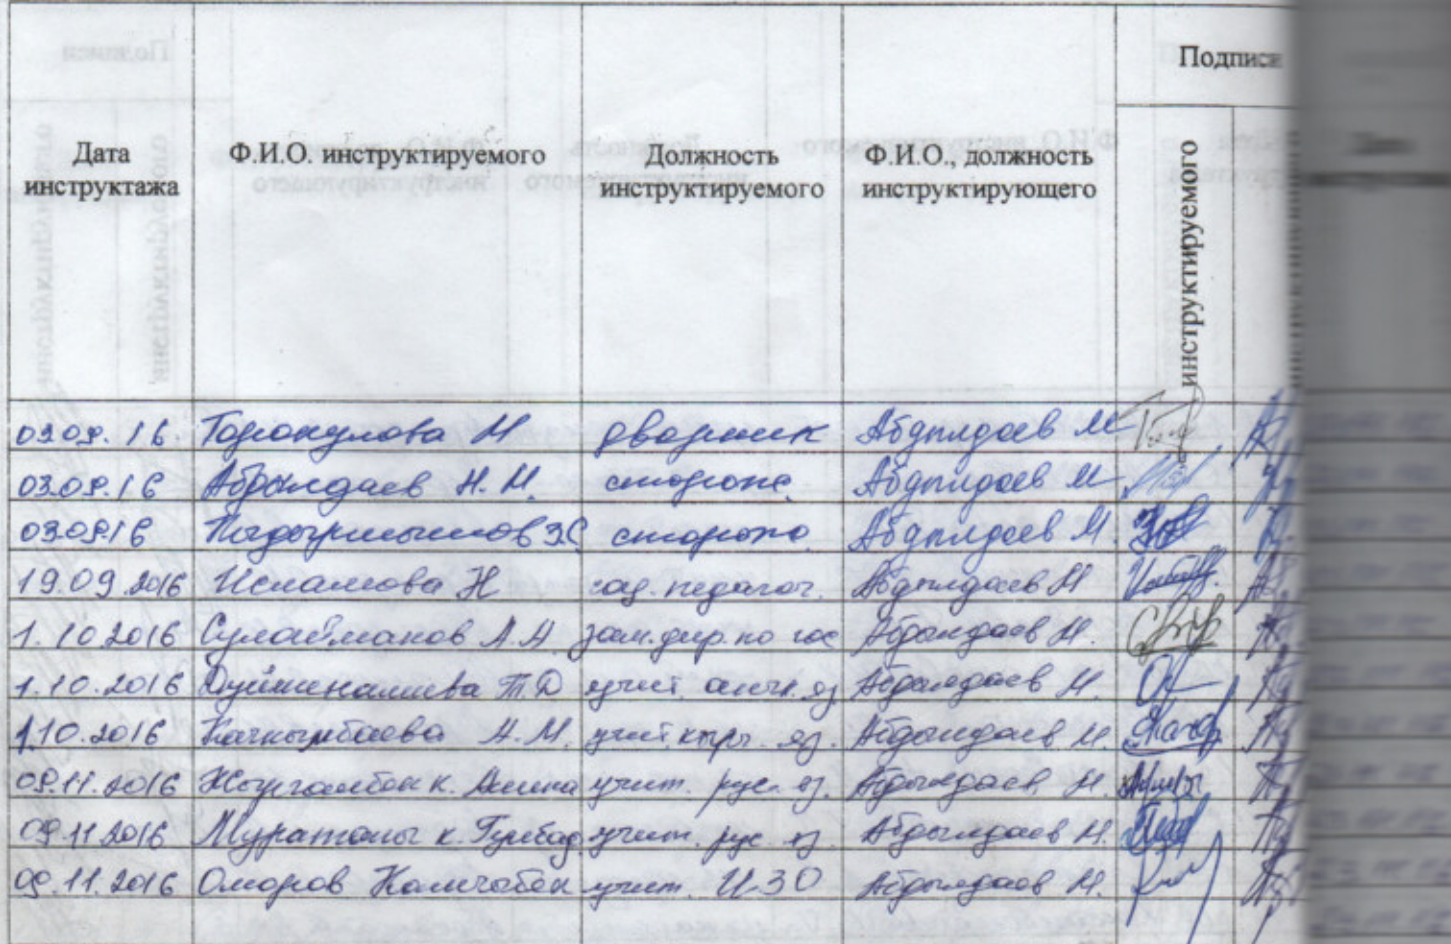 Подписи
Дата инструктажа
Ф.И.О. инструктируемого
Должность инструктируемого
Ф.И.О., должность инструктирующего
инструктируемого
03.09.16. Торокулова М дворник Абдылдаев М
03.09.16 Абдылдаев Н.М. сторож Абдылдаев М
03.09.16 сторож Абдылдаев М.
19.09.2016 Исламова Н соц. педагог. Абдылдаев М
1.10.2016 Сулайманов А.А. зам.дир.по Абдылдаев М.
1.10.2016 Дуйшеналиева Т Д учит. англ. яз. Абдылдаев М.
1.10.2016 Качкынбаева А.М. учит. кырг. яз. Абдылдаев М.
09.11.2016 к. учит. рус. яз. Абдылдаев М.
09.11.2016 к. учит. рус яз Абдылдаев М.
09.11.2016 Оморов Камчыбек учит. ИЗО Абдылдаев М.